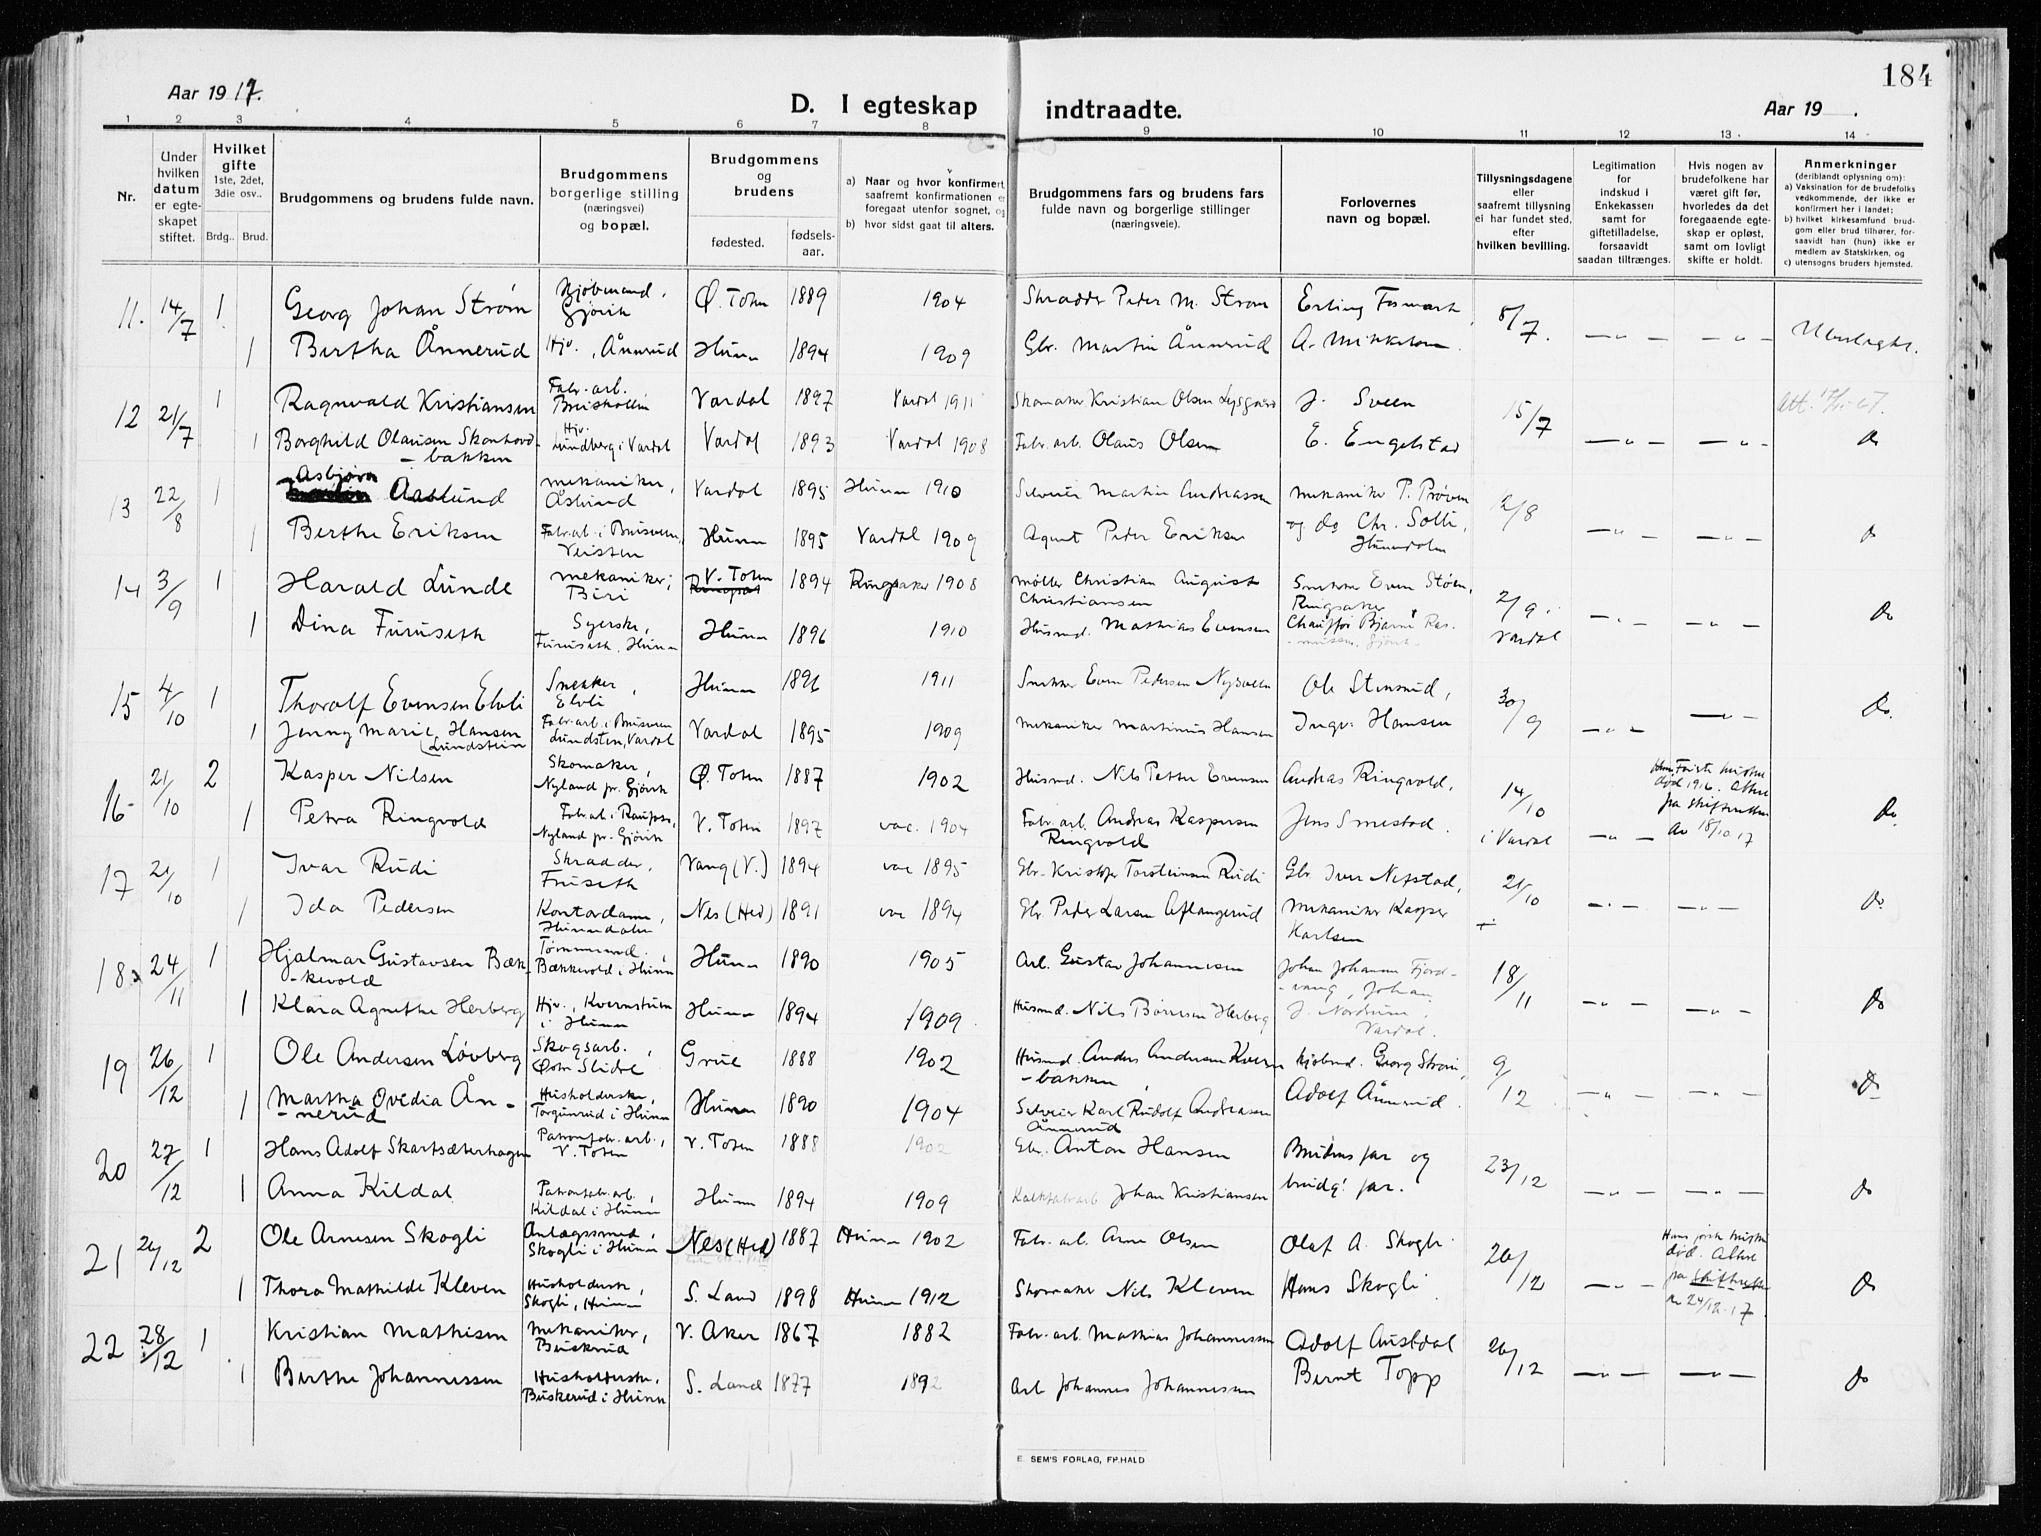 184
Aar 1917.
D. I egteskap indtraadte.
Aar 19 .
1 2 3 4 5 6 7 8 9 10 11 12 13 14
Nr.
Under hvilken datum er egteskapet stiftet.
Hvilket gifte 1ste, 2det, 3die osv..
Brdg.. Brud.
Brudgommens og brudens fulde navn.
Brudgommens borgerlige stilling (næringsvei) og bopæl.
Brudgommens og brudens
fødested. fødselsaar.
a) Naar og hvor konfirmert, saafremt konfirmationen er foregaat utenfor sognet, og
b) hvor sidst gaat til alters.
Brudgommens fars og brudens fars fulde navn og borgerlige stillinger (næringsveie).
Forlovernes navn og bopæl.
Tillysningsdagene eller saafremt tillysning ei har fundet sted, efter hvilken bevilling.
Legitimation for indskud i Enkekassen samt for giftetilladelse, forsaavidt saadan tiltrænges.
Hvis nogen av brudefolkene har været gift før, hvorledes da det foregaaende egteskap er opløst, samt om lovligt skifte er holdt.
Anmerkninger (deriblandt oplysning om):
a) Vaksination for de brudefolks vedkommende, der ikke er konfirmert her i landet;
b) hvilket kirkesamfund brudgom eller brud tilhører, forsaavidt han (hun) ikke er medlem av Statskirken, og
c) utensogns bruders hjemsted.
11. 14/7 1 Georg Johan Strøm Gjøvik Ø. Toten 1889 1904 Skrædder Peder M. Strøm Erling 8/7. — „ — — „ —
1 Bertha Ånnerud Hjv., Ånnerud Hunn 1894 1909 Gbr. Martin Ånnerud A. Mikkelsen
12 21/7 1 Ragnvald Kristiansen Fabr. arb. Vardal 1897 Vardal 1911 Skomaker Kristian Olsen J. Sveen 15/7
1 Borghild Olausen Skonhovdbakken Hjv. Lundberg i Vardal Vardal 1893 Vardal 1908 Fabr. arb. Olaus Olsen E. Engelstad — „ — — „ — Do
13 22/8 1 Asbjørn Aaslund mekaniker, Åslund Vardal 1895 Hunn 1910 Martin Andreassen mekaniker P. Prøven 2/8
1 Berthe Eriksen Fabr. arb. i Hunn 1895 Vardal 1909 Agent Peder Eriksen og do Chr. Solli, Hunndalen — „ — — „ — Do
14 3/9 1 Harald Lunde mekaniker, Biri V. Toten 1894 Ringsaker 1908 Møller Christian August Christiansen Snekker Even Støen, Ringsaker 2/9 Vardal
1 Dina Furuseth Syerske, Furuseth, Hunn Hunn 1896 1910 Husmd. Mathias Evensen Chauffør Bjarne Rasmussen, Gjøvik — „ — — „ — Do
15 4/10 1 Thorolf Evensen Elvli Snekker, Elvli Hunn 1896 1911 Snekker Even Pedersen Ole Stensrud, 30/9 Do.
1 Jenny Marie Hansen (Lundstein Fabr. arb. i Lundsten, Vardal Vardal 1895 1909 mekaniker Martinius Hansen Ingv. Hansen — „ — — „ —
16 21/10 2 Kasper Nilsen Skomaker, Nyland pr. Gjøvik Ø. Toten 1887 1902 Husmd. Nils Petter Evensen Andreas Ringvold, 14/10 i Vardal Første hustru død 1916. Attest fra skifteretten av 18/10 17
1 Petra Ringvold Fabr. arb. i Raufoss, Nyland pr. Gjøvik V. Toten 1897 vac. 1904 Fabr. arb. Andreas Kaspersen Ringvold Jens Smestad. — „ — Do
17 21/10 1 Ivar Rudi Skrædder, Fruseth Vang (V.) 1894 vac 1895 Gbr. Kristofer Torsteinsen Rudi Gbr. Iver Nefstad, 21/10
1 Ida Pedersen Kontordame, Hunndalen Nes (Hed) 1891 vac 1894 Gbr Peder Larsen Aflangerud Mekaniker Kasper Karlsen — „ — — „ — Do
18 24/11 1 Hjalmar Gustavsen Bækkevold Tømmermand, Bækkevold i Hunn Hunn 1890 1905 Arb. Gustav Johannesen Johan Johansen Fjordvang, Johan 18/11
1 Klara Agnethe Herberg Hjv., Kvernstuen i Hunn Hunn 1894 1909. Husmd. Nils Børresen Herberg J. Nordrum, Vardal. — „ — — „ — Do
19 26/12 1 Ole Andersen Lövberg Skogsarb., Østre Slidre Grue 1888 1902 Husmd. Anders Andersen Kvernbakken, kjøbmd. Georg Strøm, 9/12
1 Martha Ovidia Ånnerud Husholderske, Torgunrud i Hunn Hunn 1890 1904 Karl Rudolf Andreasen Ånnerud Adolf Ånnerud. — „ — — „ — Do
20 27/12 1 Hans Adolf Skartsæterhagen Patronfabr. arb., V. Toten V. Toten 1888 1902 Gbr. Anton Hansen Brudens far og brudg. far. 23/12
1 Anna Kildal Patronfabr. arb., Kildal i Hunn Hunn 1894 1909 Johan Kristiansen — „ — — „ — Do
21 26/12 2 Ole Arnesen Skogli Anlægssmed, Skogli i Hunn Nes (Hed) 1887 Hunn 1902 Fabr. arb. Arne Olsen Olaf A. Skogli 26/12 Hans første hustru død. Attest fra skifteretten av 24/12-17
1 Thora Mathilde Kleven Husholderske, Skogli, Hunn S. Land 1898 Hunn 1912 Skomaker Nils Kleven Hans Skogli — „ — Do
22 28/12 1 Kristian Mathisen Mekaniker, Buskrud V. Aker 1867 1882 Fabr. arb. Mathias Johannessen Adolf Austdal 26/12
1 Berthe Johannessen Husholderske, Buskerud i Hunn S. Land 1877 1892 Arb Johannes Johannessen Bernt Topp — „ — — „ — Do
E. SEM'S FORLAG, FR.HALD